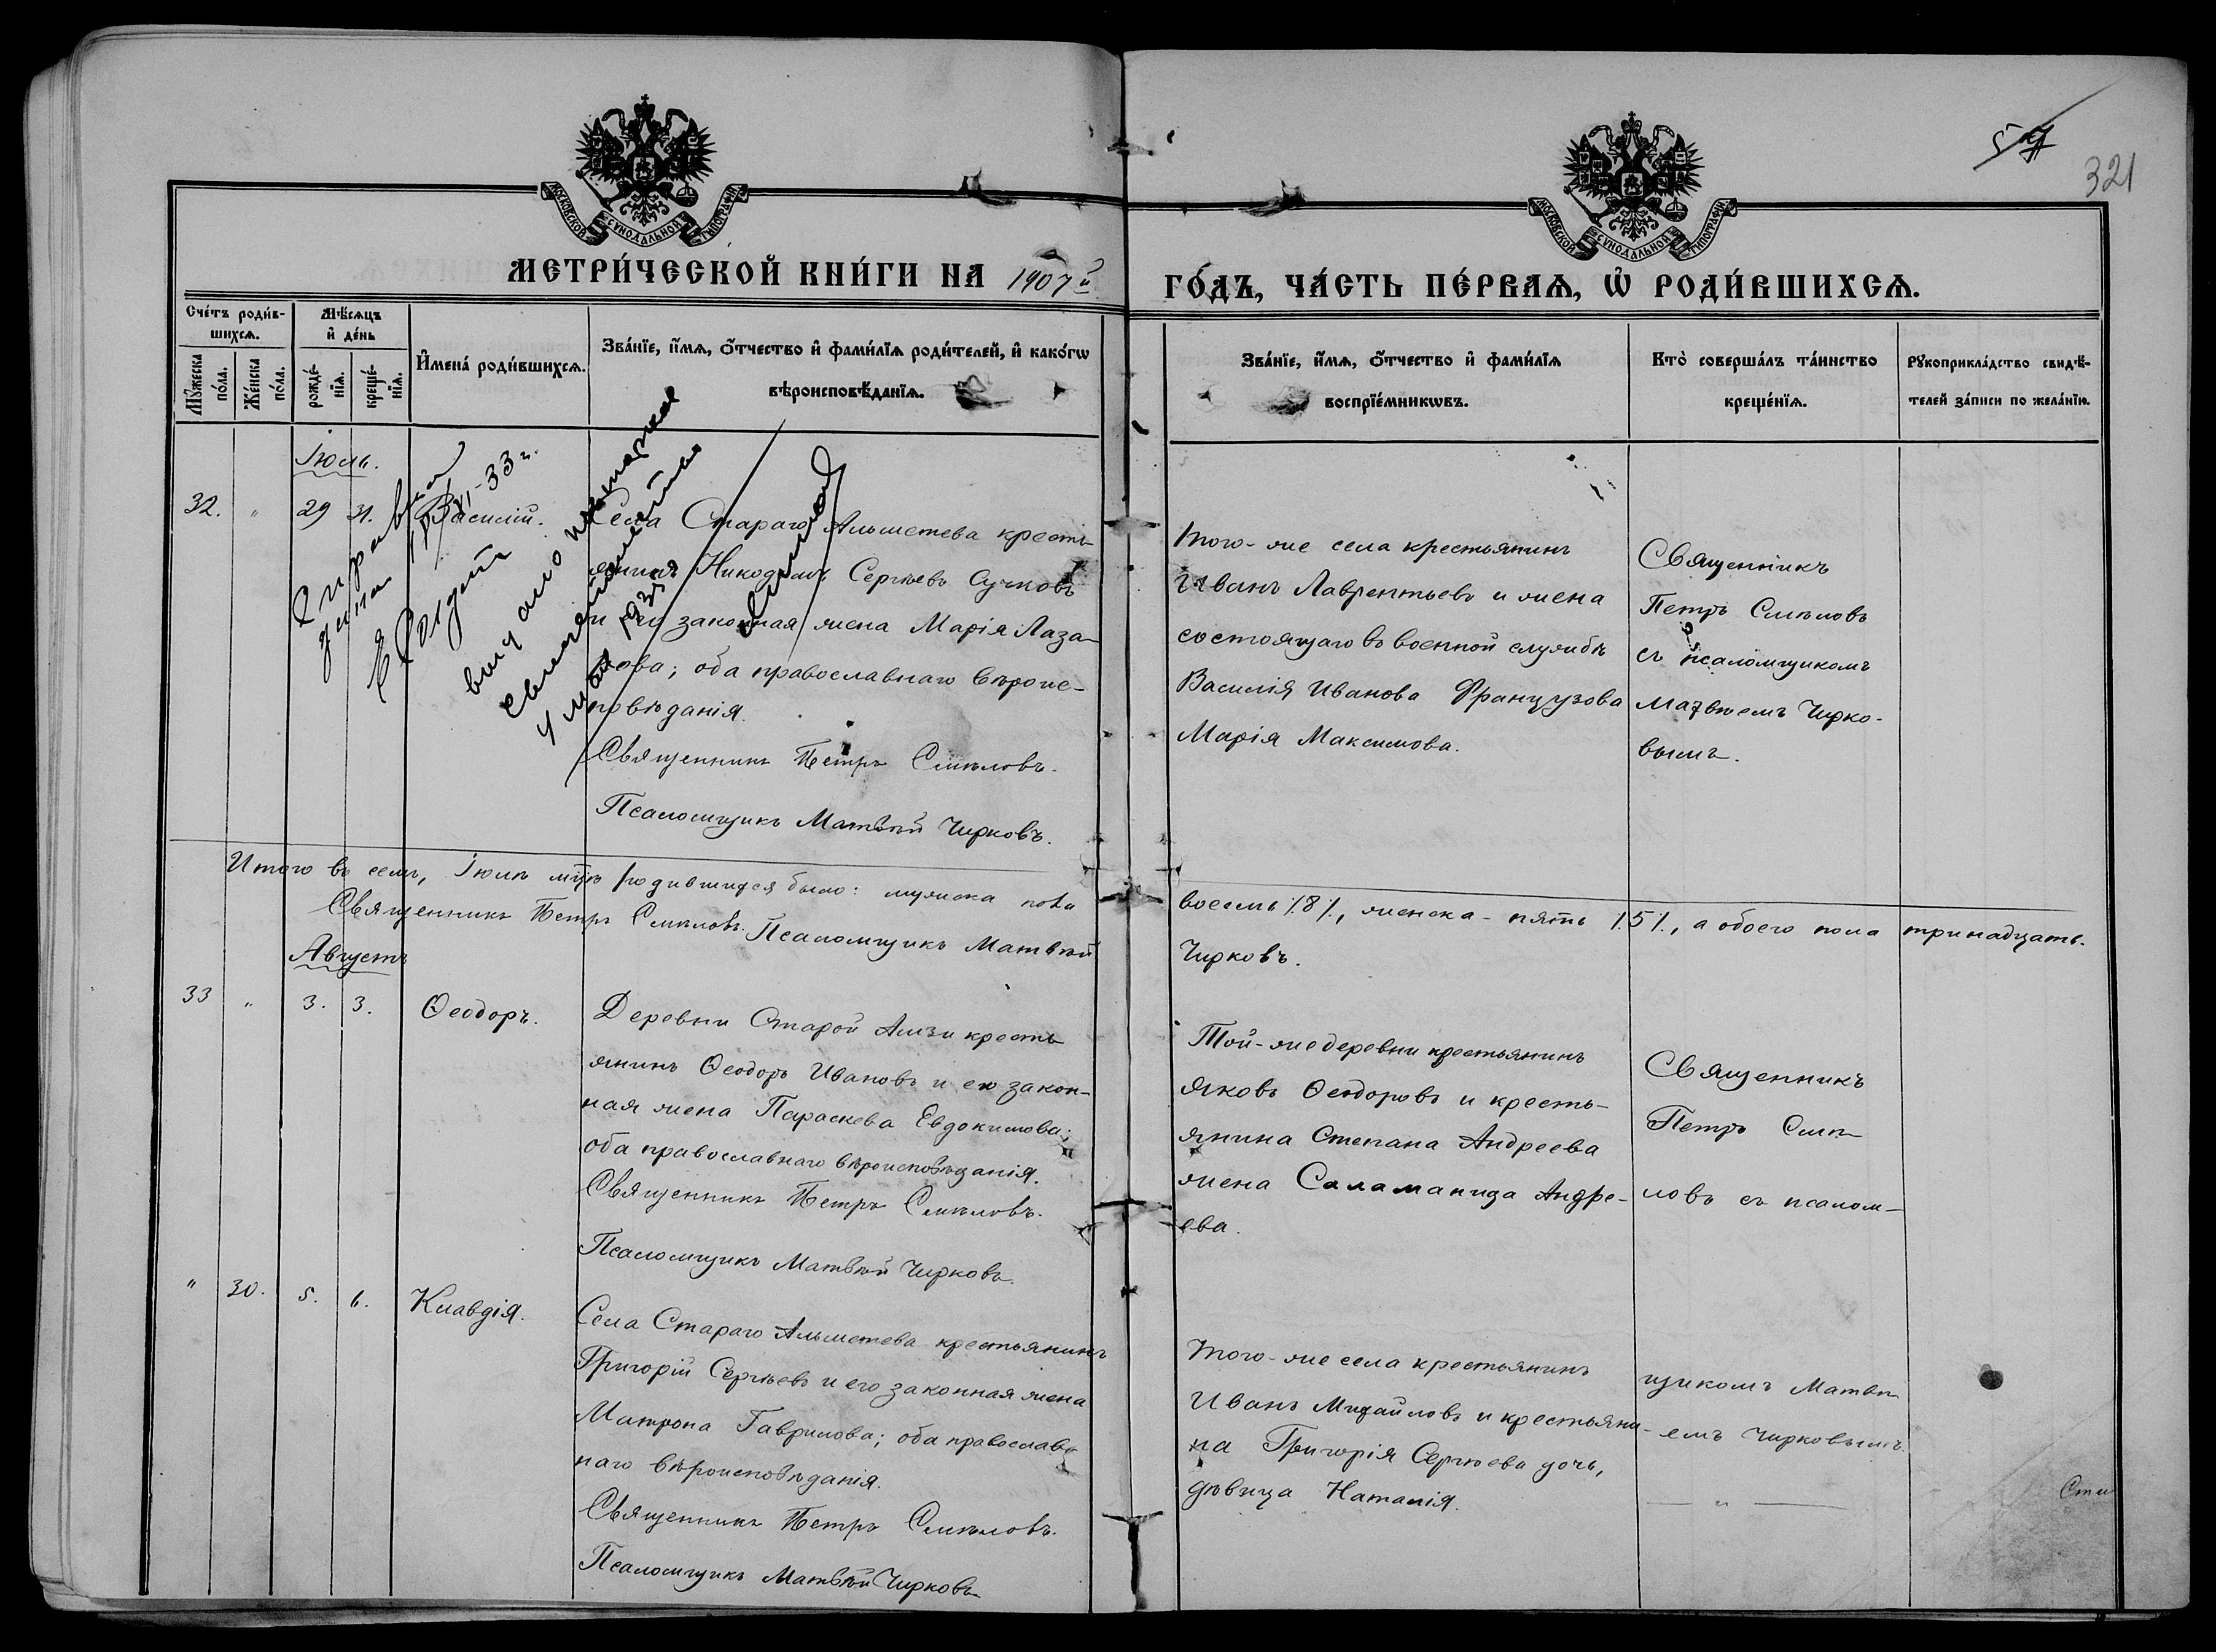 57
321
МОСКОВСКОЙ СѴНОДАЛЬНОЙ ТИПОГРАФІИ
МОСКОВСКОЙ СѴНОДАЛЬНОЙ ТИПОГРАФІИ
МЕТРИ́ЧЕСКОЙ КНИ́ГИ НА 1907й
ГО́ДЪ, ЧА́СТЬ ПЕ́РВАѦ, Ѡ РОДИ́ВШИХСѦ.
Сче́тъ роди́в-
шихсѧ.
Мꙋ́жеска по́ла.
Же́нска по́ла.
Мѣ́сѧцъ
и҆ де́нь
рожде́-
нїѧ.
креще́-
нїѧ.
И҆мена̀ роди́вшихсѧ.
Зва́нїе, и҆́мѧ, ѻ҆́тчество и҆ фами́лїѧ роди́телей, и҆ како́гѡ
вѣроисповѣ́данїѧ.
Зва́нїе, и҆́мѧ, ѻ҆́тчество и҆ фами́лїѧ
воспрїе́мникѡвъ.
Кто̀ соверша́лъ та́инство
креще́нїѧ.
Рꙋкоприкла́дство свидѣ́-
телей за́писи по жела́нїю.
Іюль.
32. " 29 31. Василій.
Села Стараго Альметева кресть-
янинъ Никодимъ Сергѣевъ Сучковъ
и его законная жена Марія Лаза-
рова; оба православнаго вѣроис-
повѣданія.
Священникъ Петръ Смѣловъ.
Псаломщикъ Матвѣй Чирковъ.
Того-же села крестьянинъ
Иванъ Лаврентьевъ и жена
состоящаго въ военной службѣ
Василія Иванова Французова
Марія Максимова.
Священникъ
Петръ Смѣловъ
съ псаломщикомъ
Матвѣемъ Чирко-
вымъ.
справка
XI-33 г.
1935
Итого въ семъ, Іюлѣ мцѣ родившихся было: мужска пола восемь /8/, женска - пять /5/, а обоего пола тринадцать.
Священникъ Петръ Смѣловъ. Псаломщикъ Матвѣй Чирковъ.
Августъ
33 " 3. 3. Ѳеодоръ.
Деревни Старой Амзи кресть-
янинъ Ѳеодоръ Ивановъ и его закон-
ная жена Параскева Евдокимова;
оба православнаго вѣроисповѣданія.
Священникъ Петръ Смѣловъ.
Псаломщикъ Матвѣй Чирковъ.
Той-же деревни крестьянинъ
Яковъ Ѳеодоровъ и кресть-
янина Степана Андреева
жена Саламанида Андре-
ева.
Священникъ
Петръ Смѣ-
ловъ съ псалом-
" 30. 5. 6. Клавдія.
Села Стараго Альметева крестьянинъ
Григорій Сергѣевъ и его законная жена
Матрона Гаврилова; оба православ-
наго вѣроисповѣданія.
Священникъ Петръ Смѣловъ.
Псаломщикъ Матвѣй Чирковъ
Того-же села крестьянинъ
Иванъ Михайловъ и крестьяни-
на Григорія Сергѣева дочь,
дѣвица Наталія.
щикомъ Матвѣ-
емъ Чирковымъ.
— " —